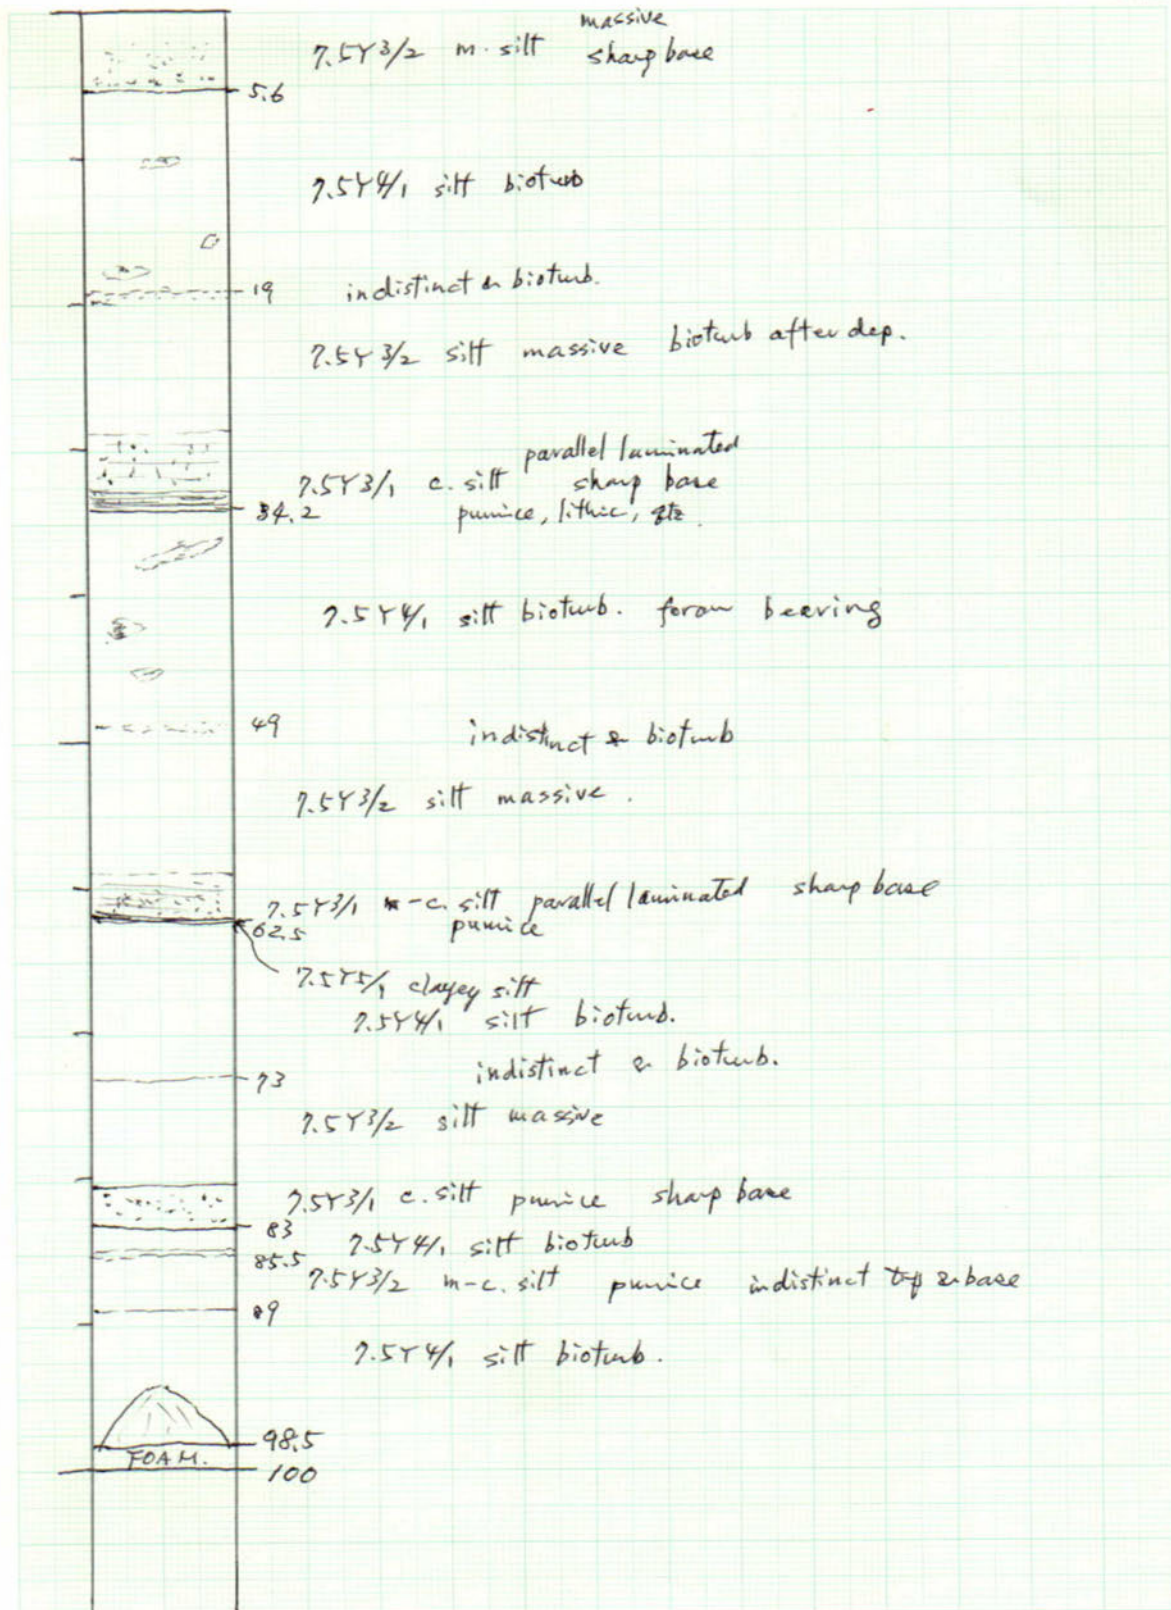 massive
7.5Y3/2 m. silt sharp base
5.6
7.5Y4/1 silt bioturb
19 indistinct & bioturb.
7.5Y3/2 silt massive bioturb after dep.
parallel laminated
7.5Y3/1 c. silt sharp base
34.2 pumice, lithic, qtz.
7.5Y4/1 silt bioturb. foram bearing
49 indistinct & bioturb
7.5Y3/2 silt massive.
7.5Y3/1 m-c. silt parallel laminated sharp base
62.5 pumice
7.5Y5/1 clayey silt
7.5Y4/1 silt bioturb.
73 indistinct & bioturb.
7.5Y3/2 silt massive
7.5Y3/1 c. silt pumice sharp base
83
7.5Y4/1 silt bioturb
85.5
7.5Y3/2 m-c. silt pumice indistinct top & base
89
7.5Y4/1 silt bioturb.
98.5
FOAM.
100